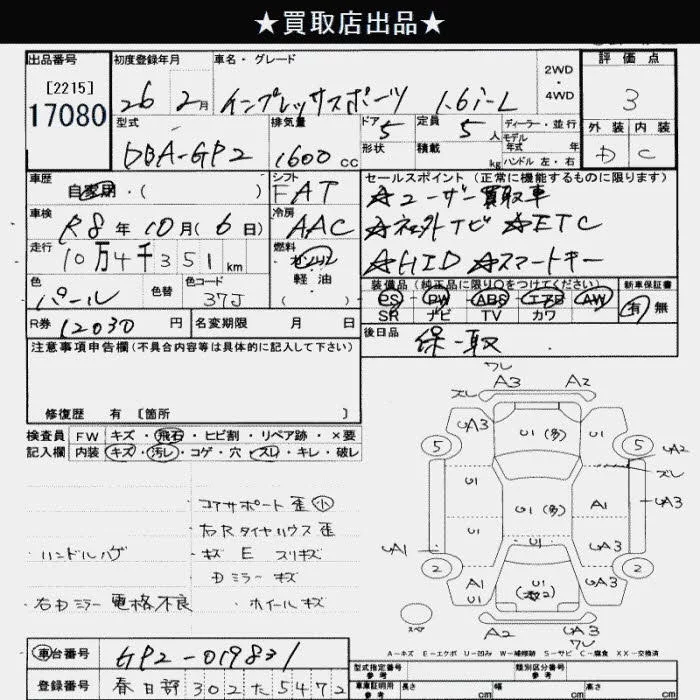 ★買取店出品★
出品番号 [2215] 17080
初度登録年月 26 2月
車名・グレード インプレッサスポーツ 1.6i-L
2WD・4WD
評価点 3
外装 D 内装 C
型式 DBA-GP2
排気量 1600cc
ドア 5 定員 5人
形状 積載 kg
ディーラー・並行
モデル年式 年
ハンドル 左・右
車歴 自家用・( )
シフト FAT
セールスポイント(正常に機能するものに限ります)
☆ユーザー買取車
☆社外ナビ ☆ETC
☆HID ☆スマートキー
車検 R8年10月(6日)
冷房 AAC
走行 10万4千351km
燃料 ガソリン 軽油 ( )
色 パール 色替 色コード 37J
装備品(純正品に限り○をつけてください)
PS PW ABS エアB AW
SR ナビ TV カワ
新車保証書 有 無
R券 12030円 名変期限 月 日
後日品 保一取
注意事項申告欄(不具合内容等は具体的に記入して下さい)
修復歴 有 [箇所 ]
検査員記入欄
FW キズ・飛石・ヒビ割・リペア跡・×要
内装 キズ・汚レ・コゲ・穴・スレ・キレ・破レ
コアサポート歪 小
右Rタイヤハウス歪
・ハンドルハゲ ・キズ E スリキズ
Dミラーキズ
・右Dミラー電格不良 ・ホイールキズ
ワレ
A3 A2
ズレ
UA3 U1(多) U1
5 5
UA2
ズレ
U1 U1(多) A1 UA3
U1 U1 UA3
UA1
2 2
A1 U1 U1 UA3
スペア
A2 UA3
ワレ
A-キズ E-エクボ U-凹み W-補修跡 S-サビ C-腐食 XX-交換済
車台番号 GP2-019831
登録番号 春日部302た5472
型式指定番号 参考 類別区分番号 参考
車庫証明用 参考 長さ cm 幅 cm 高さ cm